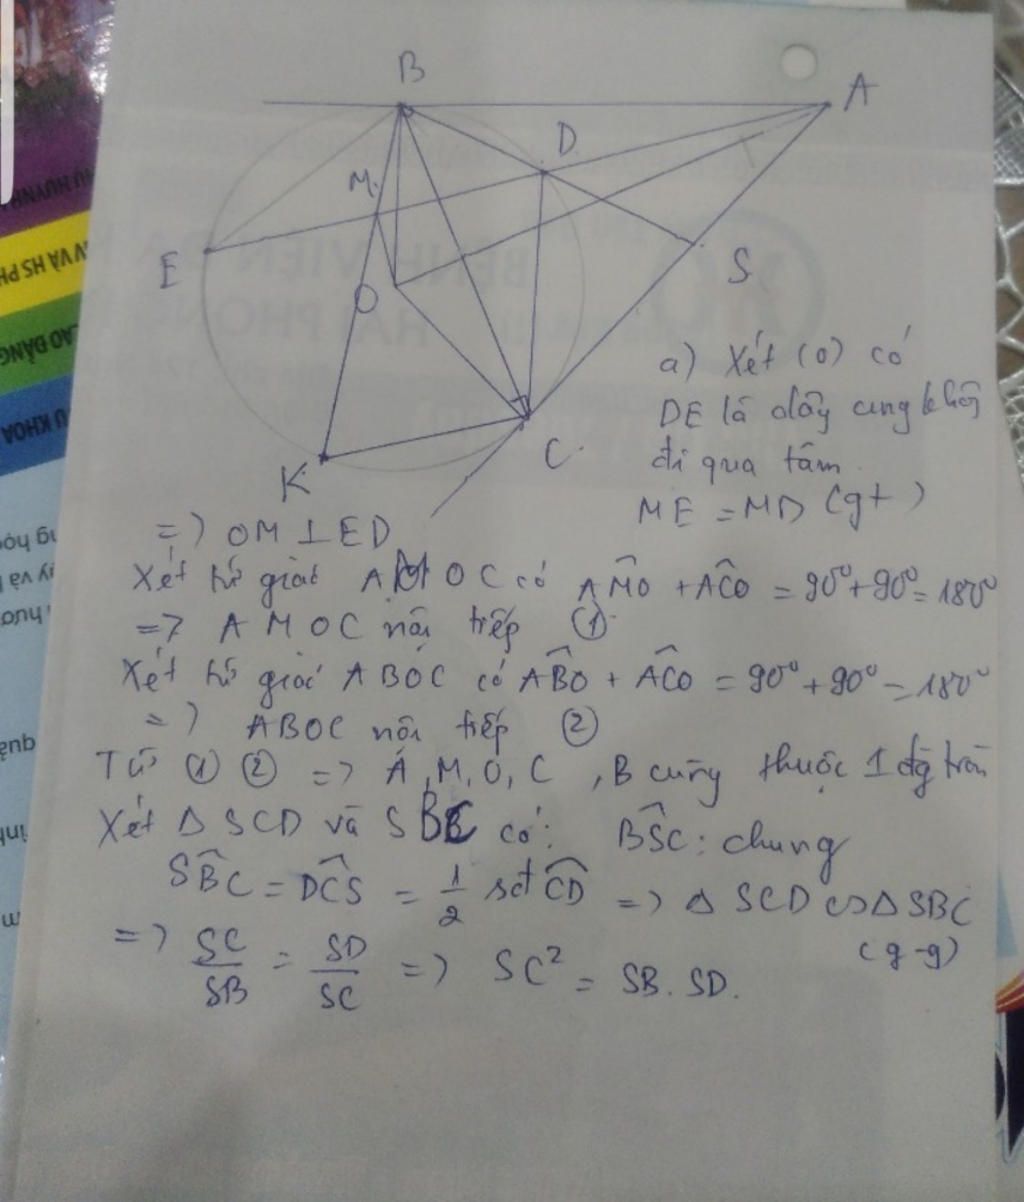 B
A
D
M
E
S
O
C
K
a) Xét (O) có
DE là dây cung không
đi qua tâm
ME = MD (gt)
=> OM ⊥ ED
Xét tứ giác AMOC có AMÔ + ACÔ = 90° + 90° = 180°
=> AMOC nội tiếp ①
Xét tứ giác ABOC có ABÔ + ACÔ = 90° + 90° = 180°
=> ABOC nội tiếp ②
Từ ① ② => A, M, O, C, B cùng thuộc 1 đg tròn
Xét Δ SCD và SBC có: BŜC : chung
SB̂C = DĈS = 1/2 sđ CD => Δ SCD ∽ Δ SBC
(g-g)
=> SC/SB = SD/SC => SC² = SB. SD.
BỆNH VIỆN
HẢI PHÒNG
VÀ HS PH
CAO ĐẲNG
KHOA